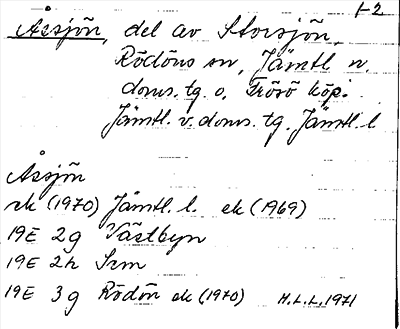 1-2
Åssjön, del av Storsjön,
Rödöns sn, Jämtl. n.
doms. tg. o. Frösö köp.
Jämtl. v. doms. tg. Jämtl. l
Åssjön
ek (1970) Jämtl. l. ek (1969)
19E 2g Västbyn
19E 2h
19E 3g Rödön ek (1970) H.L.L. 1971